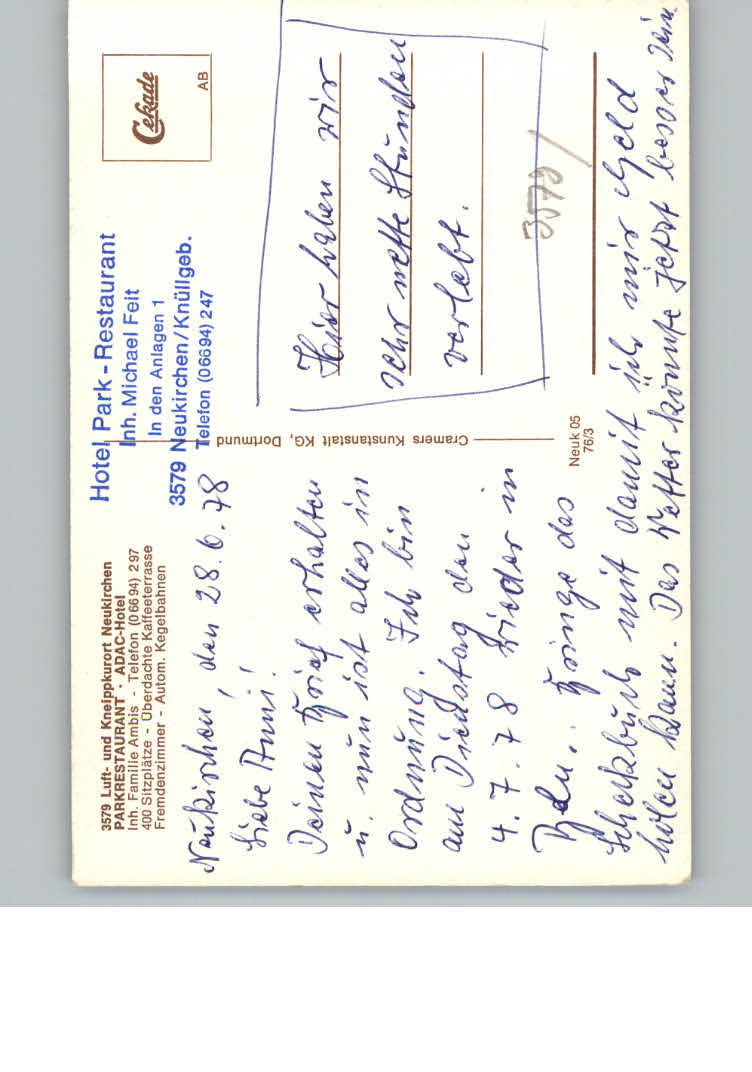 3579 Luft- und Kneippkurort Neukirchen
PARKRESTAURANT · ADAC-Hotel
Inh. Familie Ambis - Telefon (06694) 297
400 Sitzplätze - Überdachte Kaffeeterrasse
Fremdenzimmer - Autom. Kegelbahnen
Hotel Park-Restaurant
Inh. Michael Feit
In den Anlagen 1
3579 Neukirchen/Knüllgeb.
Telefon (06694) 247
Cekade
AB
Neukirchen, den 28.6.78
Liebe Anni!
Deinen Brief erhalten
u. nun ist alles in
Ordnung. Ich bin
am Dienstag den
4.7.78 wieder in
Bln.. Bringe das
Scheckbuch mit damit ich mir Geld
holen kann. Das Wetter könnte jetzt besser sein
Hier haben wir
sehr nette Stunden
verlebt.
3579/
Cramers Kunstanstalt KG, Dortmund
Neuk 05
76/3